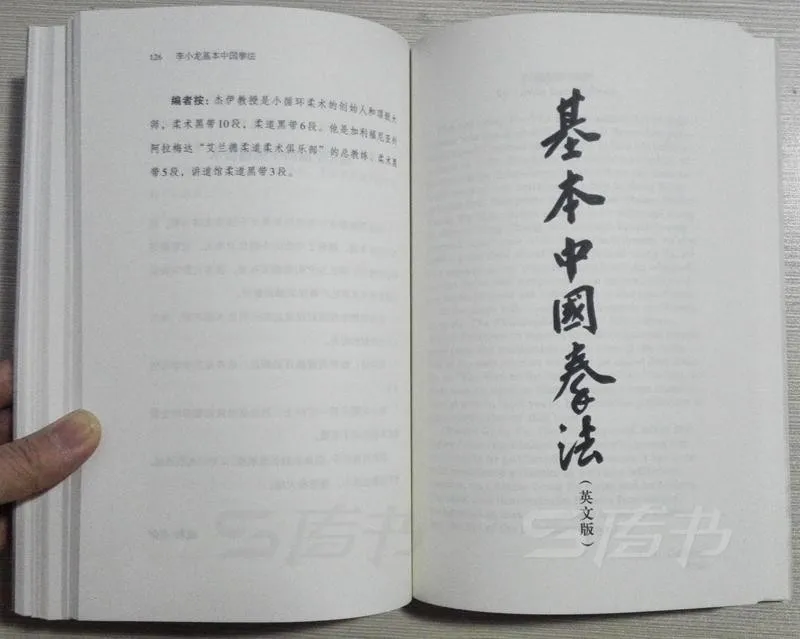 126 李小龙基本中国拳法
编者按：杰伊教授是小循环柔术的创始人和顶级大
师，柔术黑带10段，柔道黑带6段。他是加利福尼亚州
阿拉梅达“艾兰德柔道柔术俱乐部”的总教练、柔术黑
带5段，讲道馆柔道黑带3段。
基本中國拳法
（英文版）
盾书
盾书